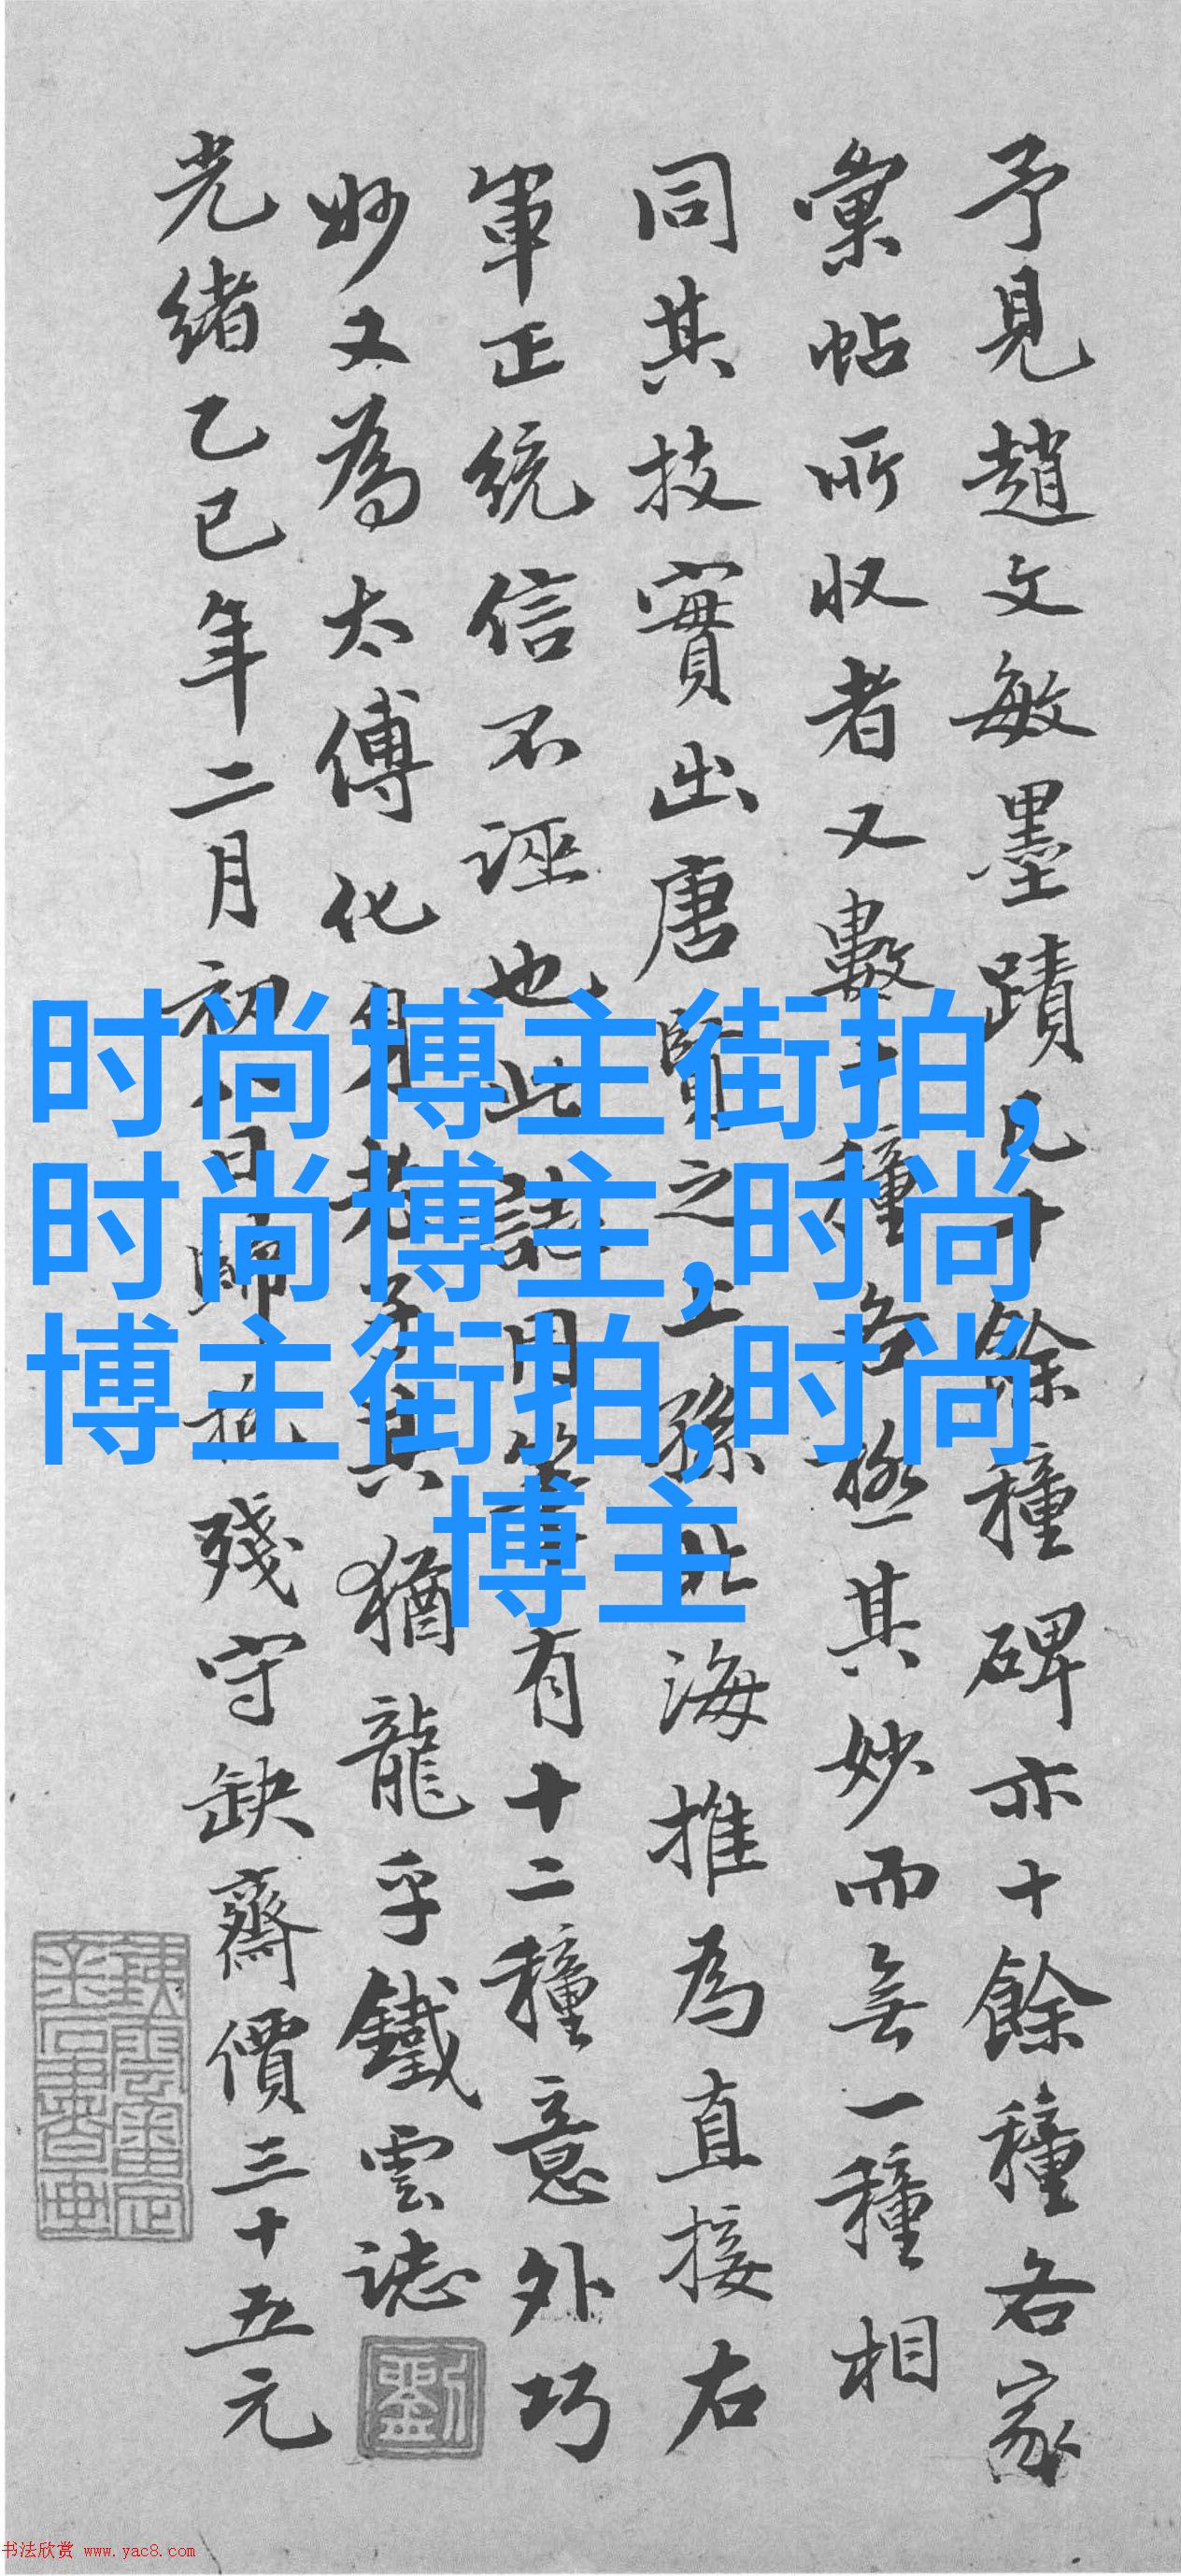 予見趙文敏墨蹟凡十餘種碑亦十餘種各家
彙帖所收者又數十種各極其妙而無一種相
同其技實出唐賢之上孫北海推為直接右
軍正統信不誣也此誌用筆有十二種意外巧
妙又為太傅化身老子其猶龍乎鐵雲誌
劉
光緒乙巳年二月初日歸抱殘守缺齋價三十五元
时尚博主街拍,
时尚博主,时尚
博主街拍,时尚
博主
书法欣赏 www.yac8.com